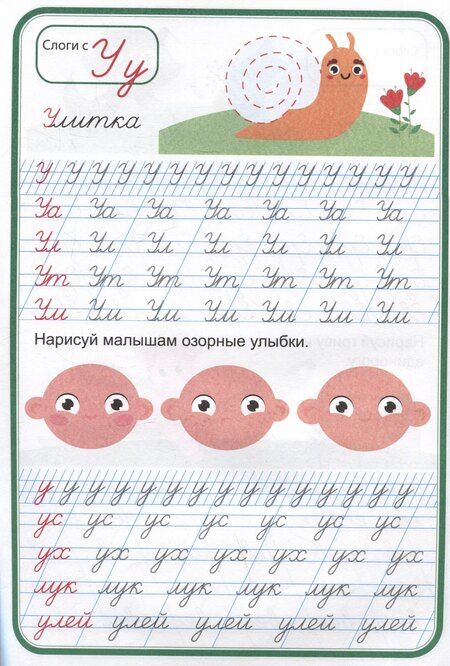 Слоги с Уу
Улитка
У У У У У У У У У У У У У У У
Уа Уа Уа Уа Уа Уа Уа
Ул Ул Ул Ул Ул Ул Ул
Ут Ут Ут Ут Ут Ут Ут
Ум Ум Ум Ум Ум Ум Ум
Нарисуй малышам озорные улыбки.
у у у у у у у у у у у у у у у
ус ус ус ус ус ус ус
ух ух ух ух ух ух ух
лук лук лук лук лук лук
улей улей улей улей улей